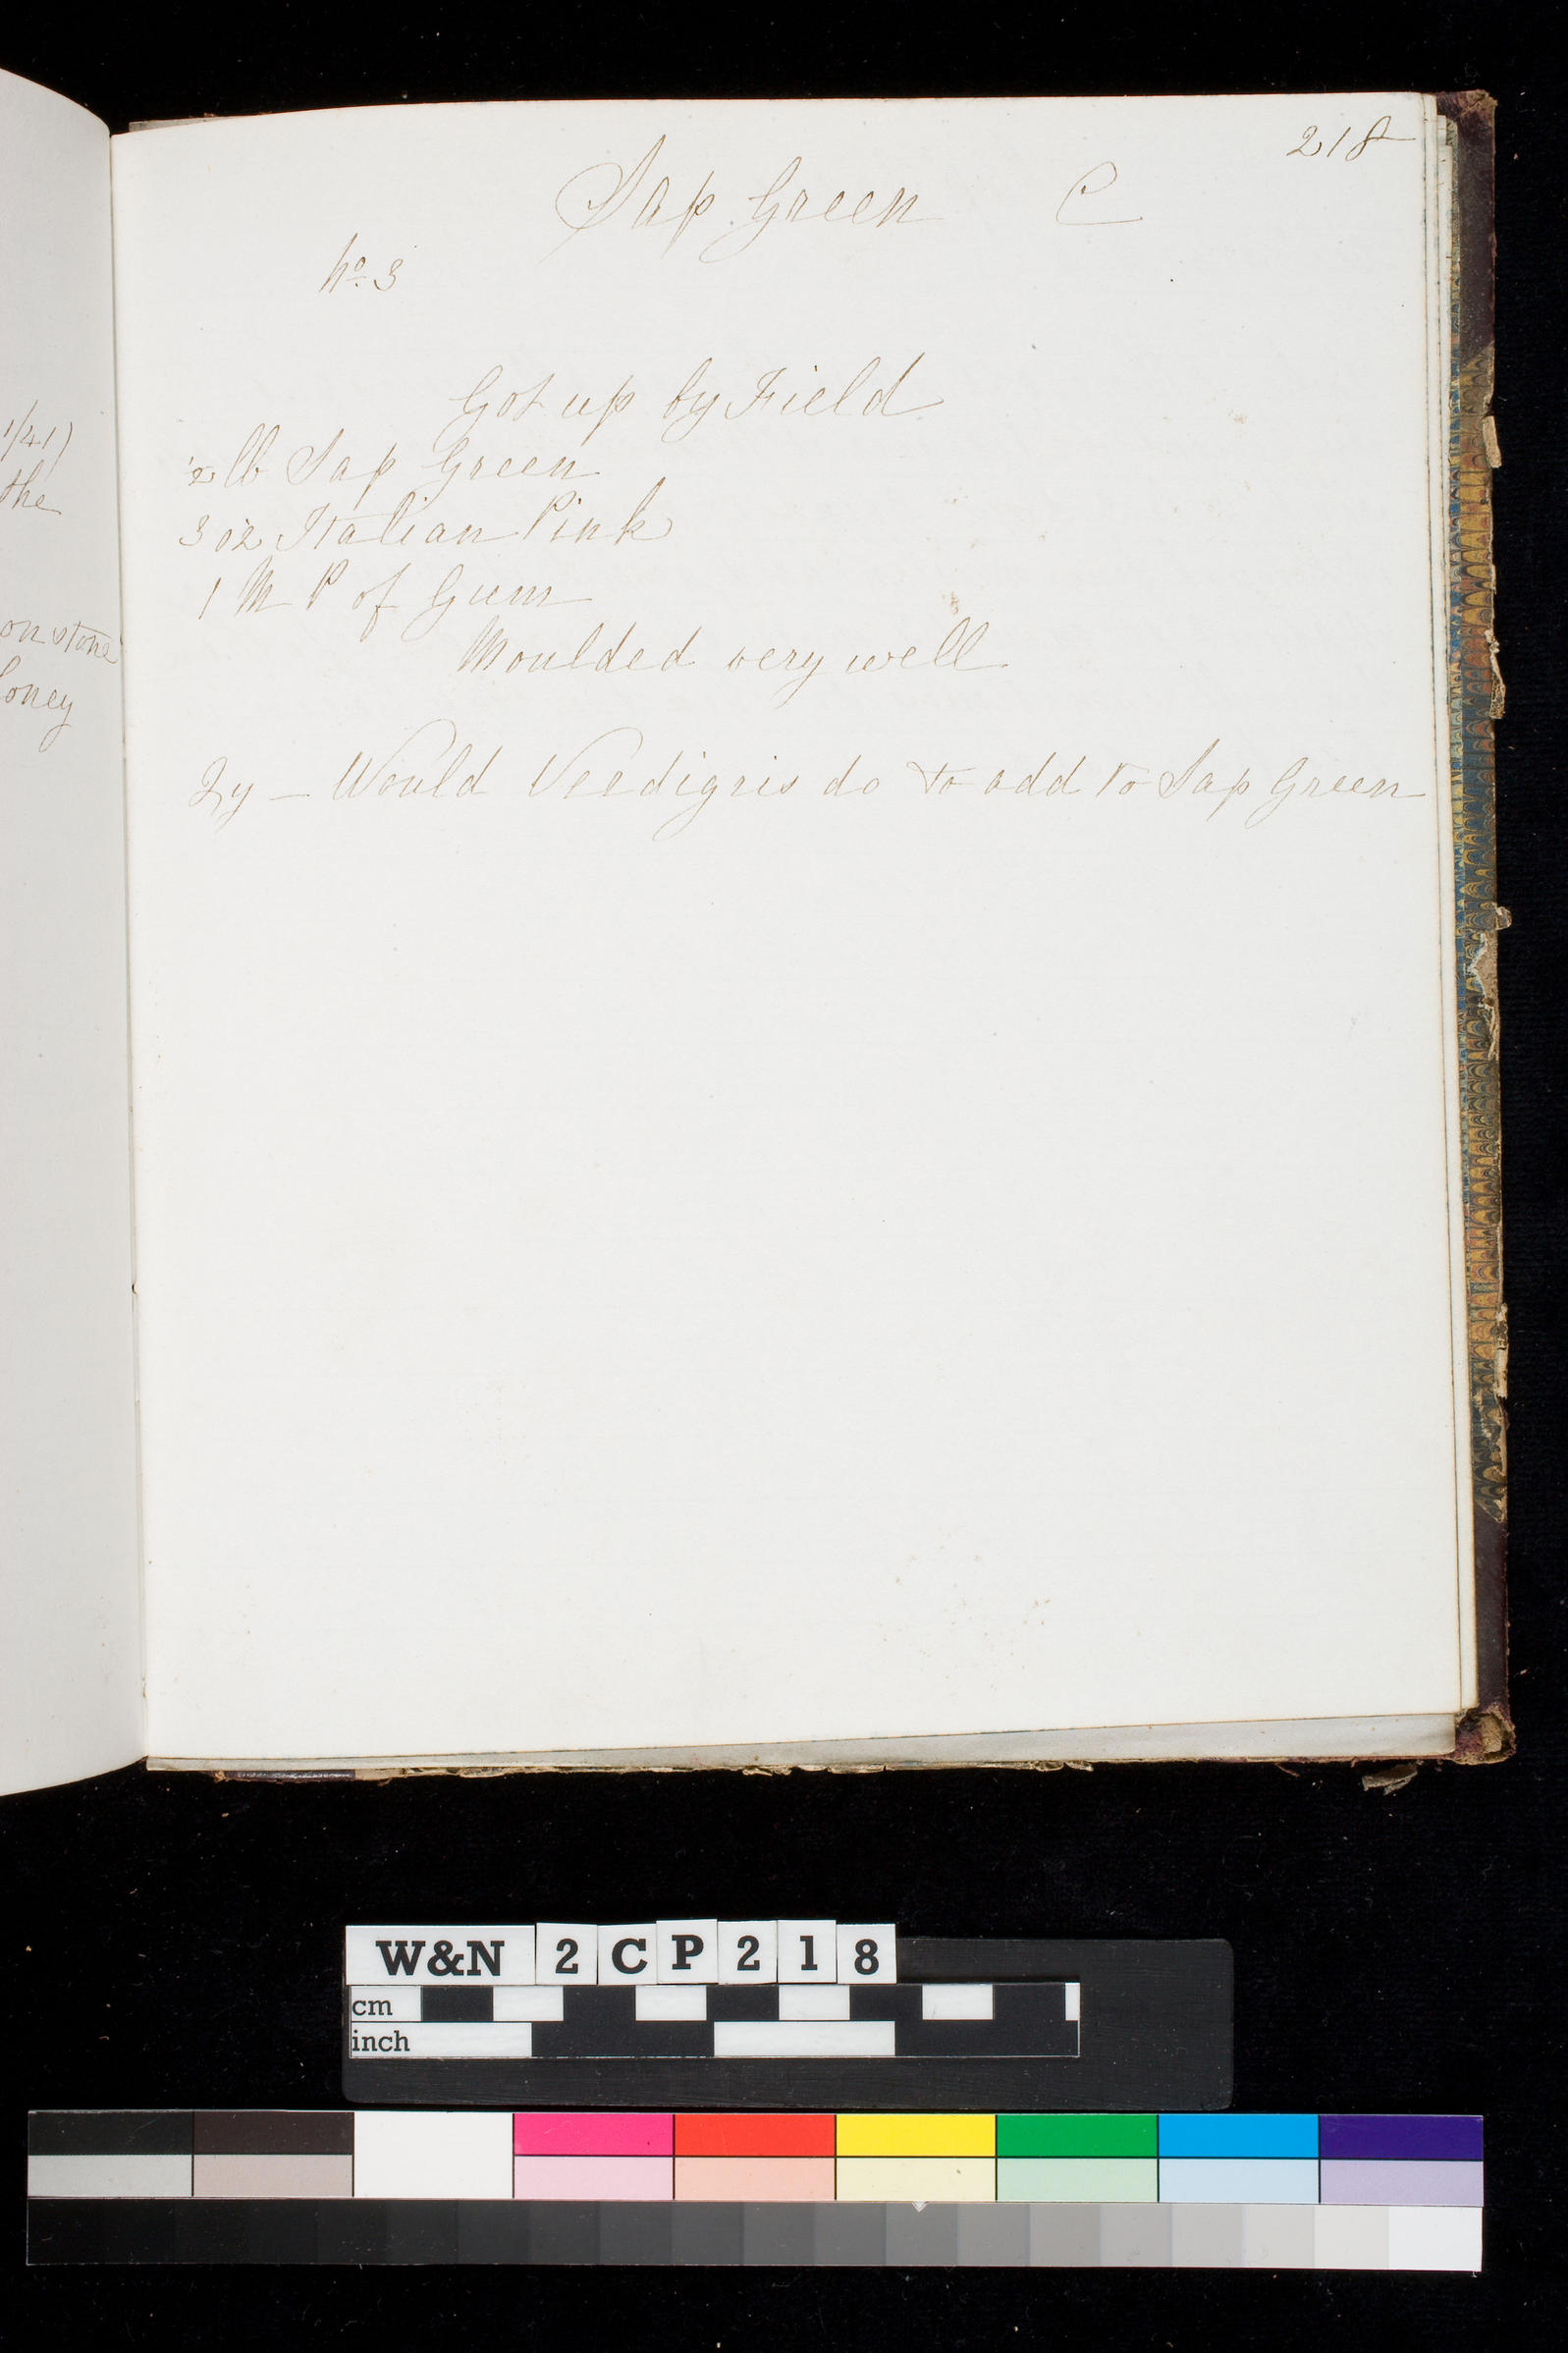 1/41)
the
on stone
oney
218
Sap Green C
No. 3
Got up by Field
½ lb Sap Green
3 oz Italian Pink
1 M P of Gum
Moulded very well
Qy — Would Verdigris do to add to Sap Green
W&N 2CP218
cm
inch